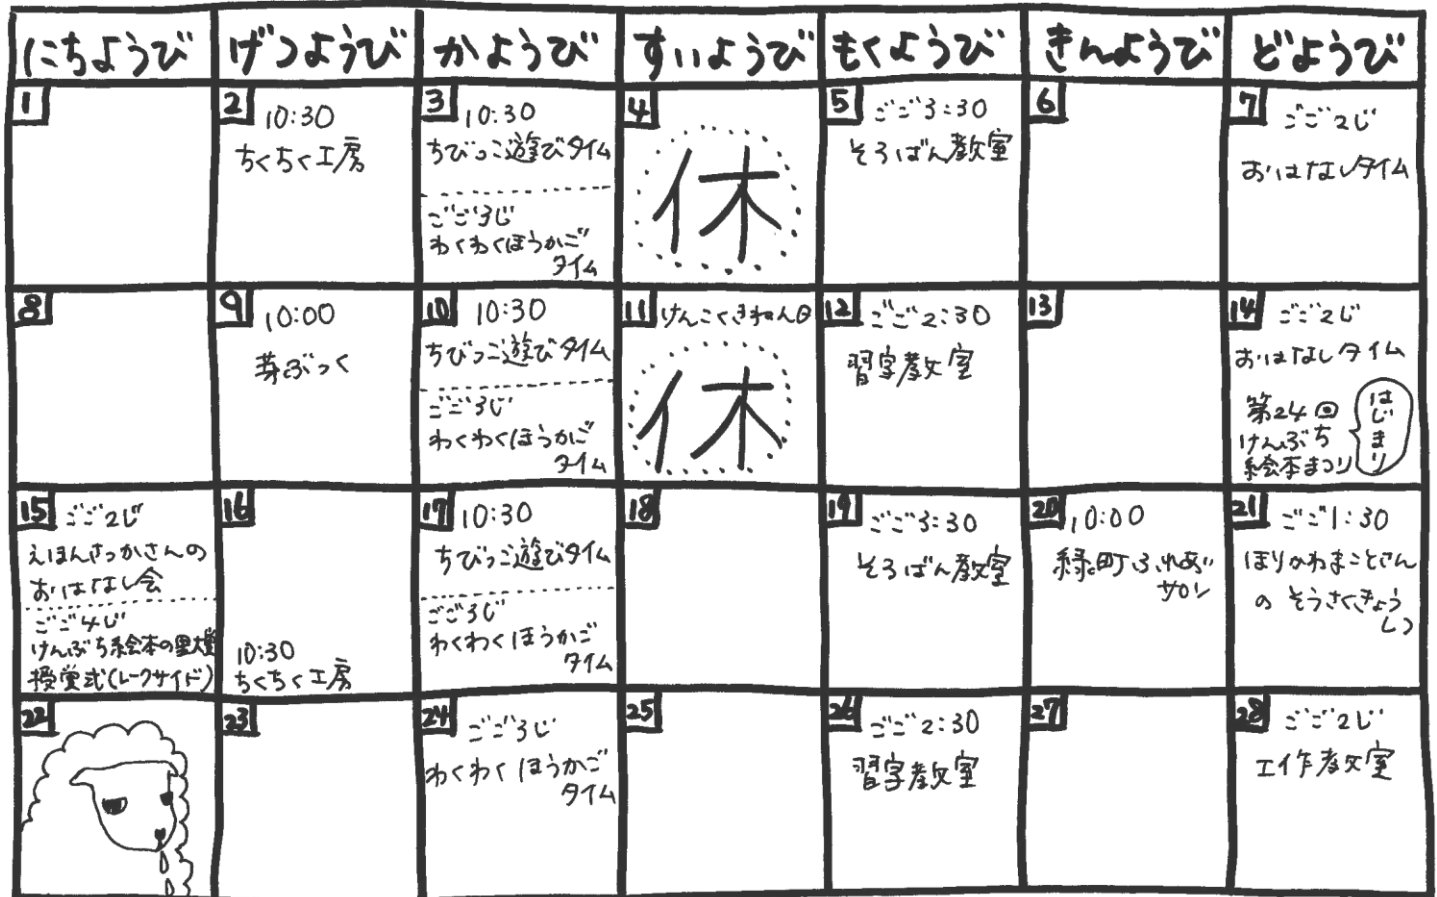 にちようび
げつようび
かようび
すいようび
もくようび
きんようび
どようび
1
2
10:30
ちくちく工房
3
10:30
ちびっこ遊びタイム
ごご3じ
わくわくほうかご
タイム
4
休
5
ごご3:30
そろばん教室
6
7
ごご2じ
おはなしタイム
8
9
10:00
芽ぶっく
10
10:30
ちびっこ遊びタイム
ごご3じ
わくわくほうかご
タイム
11
けんこくきねん日
休
12
ごご2:30
習字教室
13
14
ごご2じ
おはなしタイム
第24回
けんぶち
絵本まつり
はじまり
15
ごご2じ
えほんさっかさんの
おはなし会
ごご4じ
けんぶち絵本の里大賞
授賞式(レークサイド)
16
10:30
ちくちく工房
17
10:30
ちびっこ遊びタイム
ごご3じ
わくわくほうかご
タイム
18
19
ごご3:30
そろばん教室
20
10:00
緑町ふれあい
サロン
21
ごご1:30
ほりかわまことさん
の そうさくきょう
しつ
22
23
24
ごご3じ
わくわくほうかご
タイム
25
26
ごご2:30
習字教室
27
28
ごご2じ
工作教室